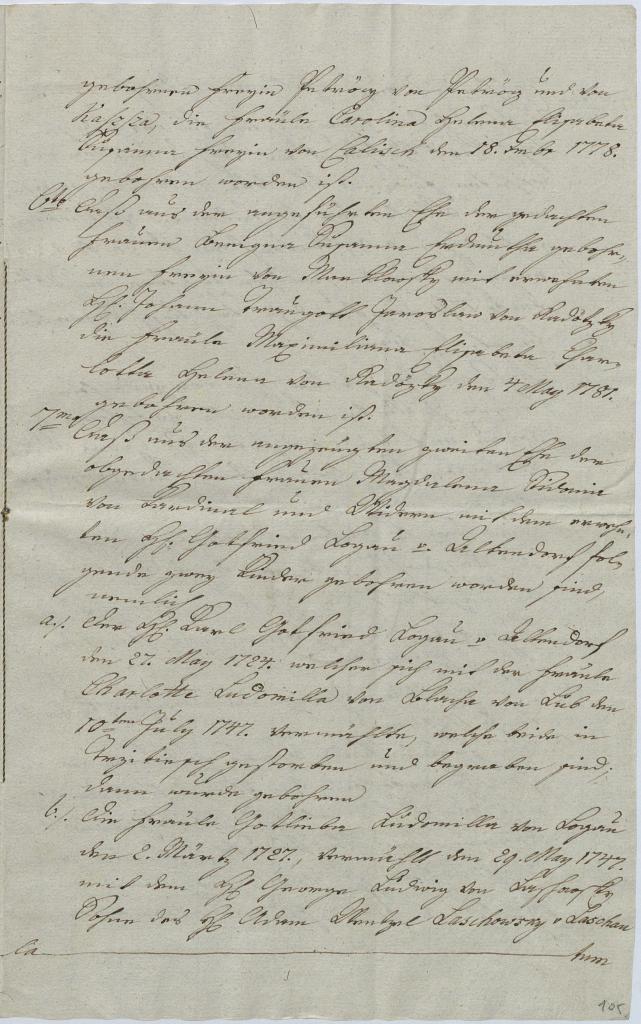 gebohrnen Freyin Petröczy von Petröcz und von
Kaszza, die Fräule Carolina Helena Elisabeta
Susanna Freyin von Calisch den 18. 1778.
gebohren worden ist.
6to Daß aus der angeführten Ehe der gedachten
Frauen Benigna Susanna gebohr-
nen Freyin von Marklowsky mit erwehnten
H. Johann Traugott Jaroslaw von Radötzky
die Fräule Maximiliana Elisabeta Char-
lotta Helena von Radötzky den 4 May 1781.
gebohren worden ist.
7mo Daß aus der angezeugten zweiten Ehe der
obgedachten Frauen Magdalena Sidonia
von Cardinal und Widern mit dem erwehn-
ten H. Gottfried Logau v. Altendorf fol-
gende zwey Kinder gebohren worden sind,
nemlich
a./. Der H. Karl Gottfried Logau v Altendorf
den 27. May 1724. welcher sich mit der Fräule
Charlotte Ludomilla von Blacha von Lub den
10ten July 1747. vermählte, welche beide in
Trzitiesch gestorben und begraben sind;
dann wurde gebohren
b./. Die Fräule Gotlieba Ludomilla von Logau
den 2. Märtz 1727., vermählt den 29. May 1747.
mit dem H. George Ludwig von Laschowsky
Sohne des H. Adam Wentzel Laschowsky v Laschau
La hum
105